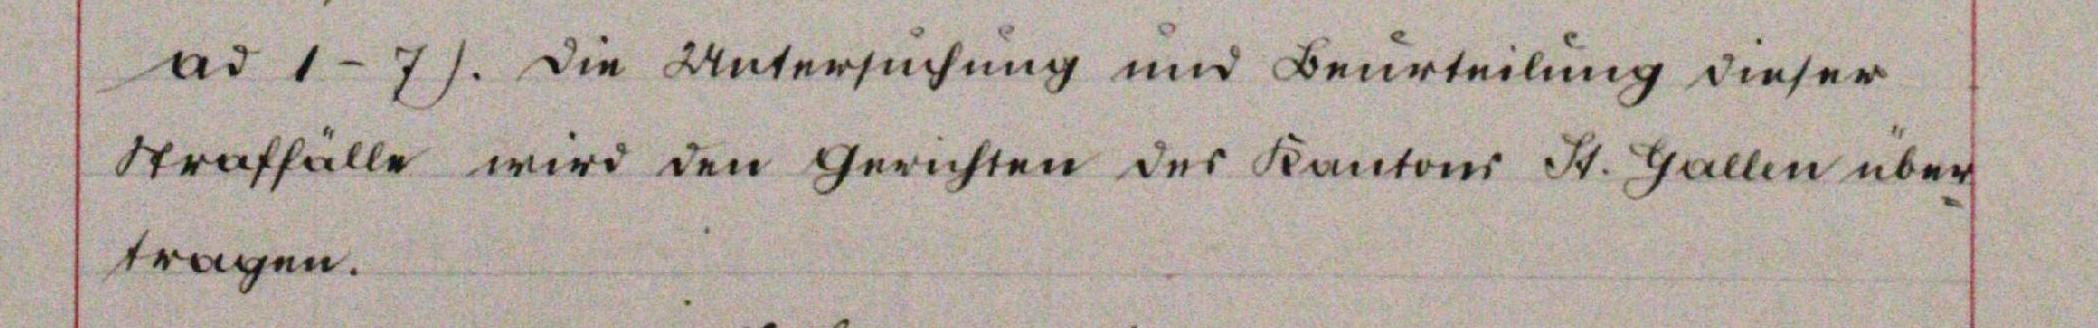 ad 1-7). Die Untersuchung und Beurteilung dieser
Straffälle wird den Gerichten des Kantons St. Gallen über-
tragen.